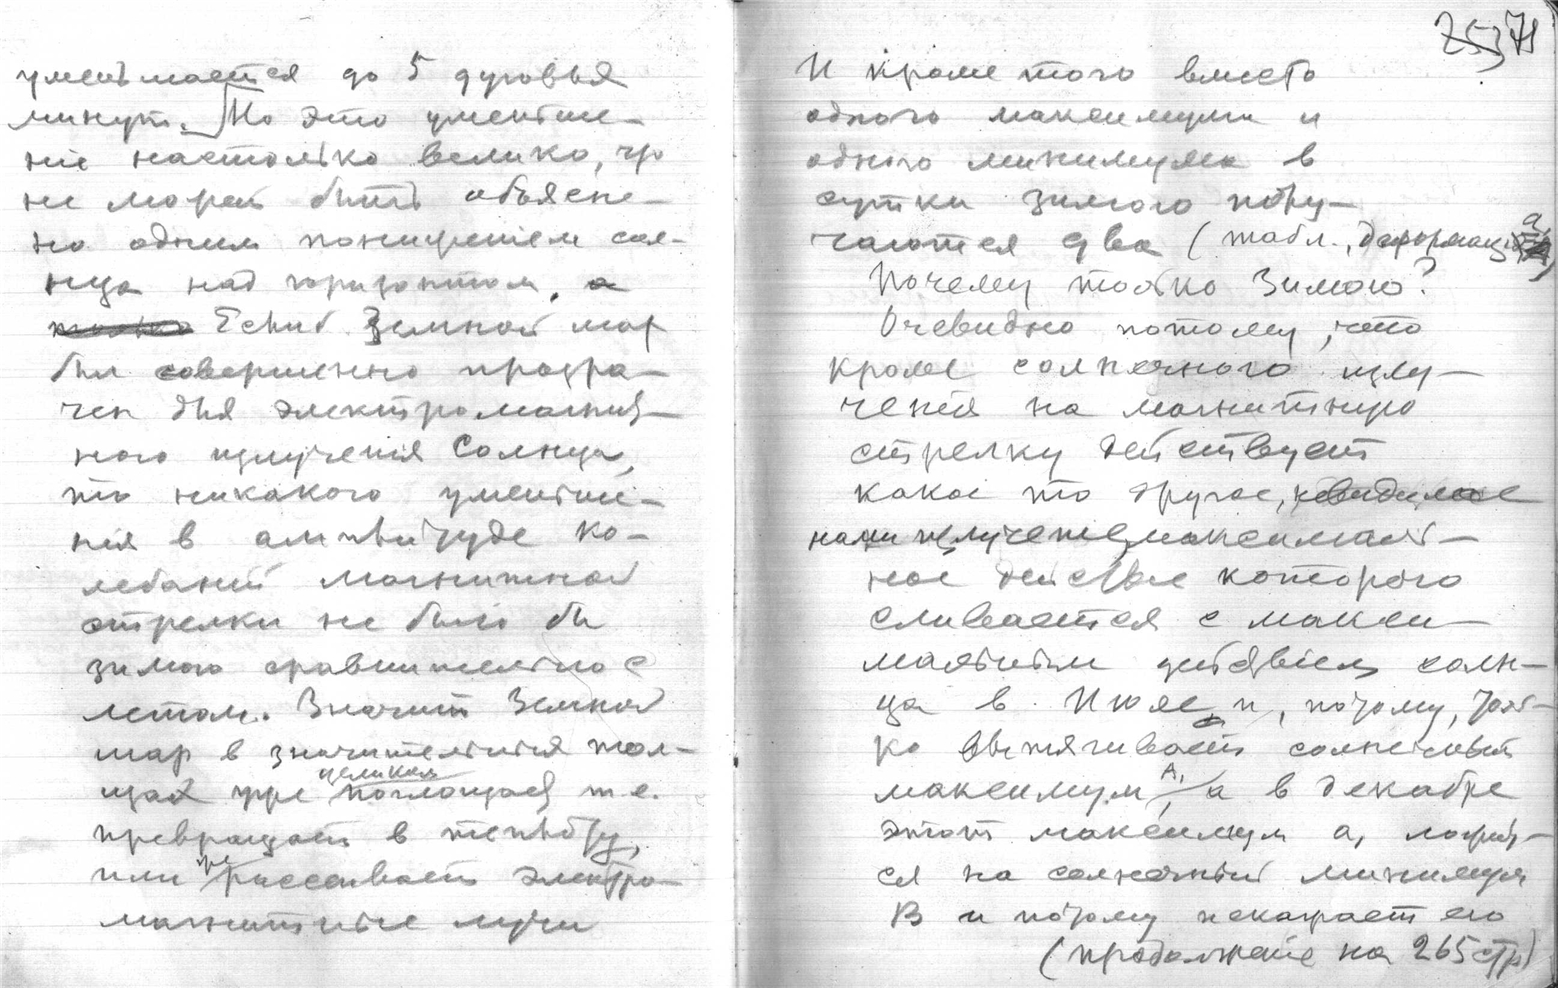 уменьшается до 5 дуговых
минут. Но это уменьше-
ніе настолько велико, что
не может быть объясне-
но одним понижением сол-
нца над горизонтом, а
Если б Земной шар
был совершенно прозра-
чен для электромагнит-
ного излучения Солнца,
то никакого уменьше-
нія в амплитуде ко-
лебаній магнитной
стрелки не было бы
зимою сравнительно с
летом. Значит Земной
шар в значительных тол-
щах уже целиком поглощает т.е.
превращает в теплоту,
или рассеивает электро-
магнитные лучи
253 71
И кроме того вместо
одного максимума и
одного минимума в
сутки зимою полу-
чаются два (табл., деформация)
Почему только зимою?
Очевидно потому, что
кроме солнечного излу-
ченія на магнитную
стрелку действует
какое то другое, невидимое
нами излучение, максималь-
ное действие которого
сливается с макси-
мальным действіем солн-
ца в Июле и, потому, толь-
ко вытягивает солнечный
максимум А, а в декабре
этот максимум а, ложит-
ся на солнечный минимум
В и потому искажает его
(продолжение на 265 стр)